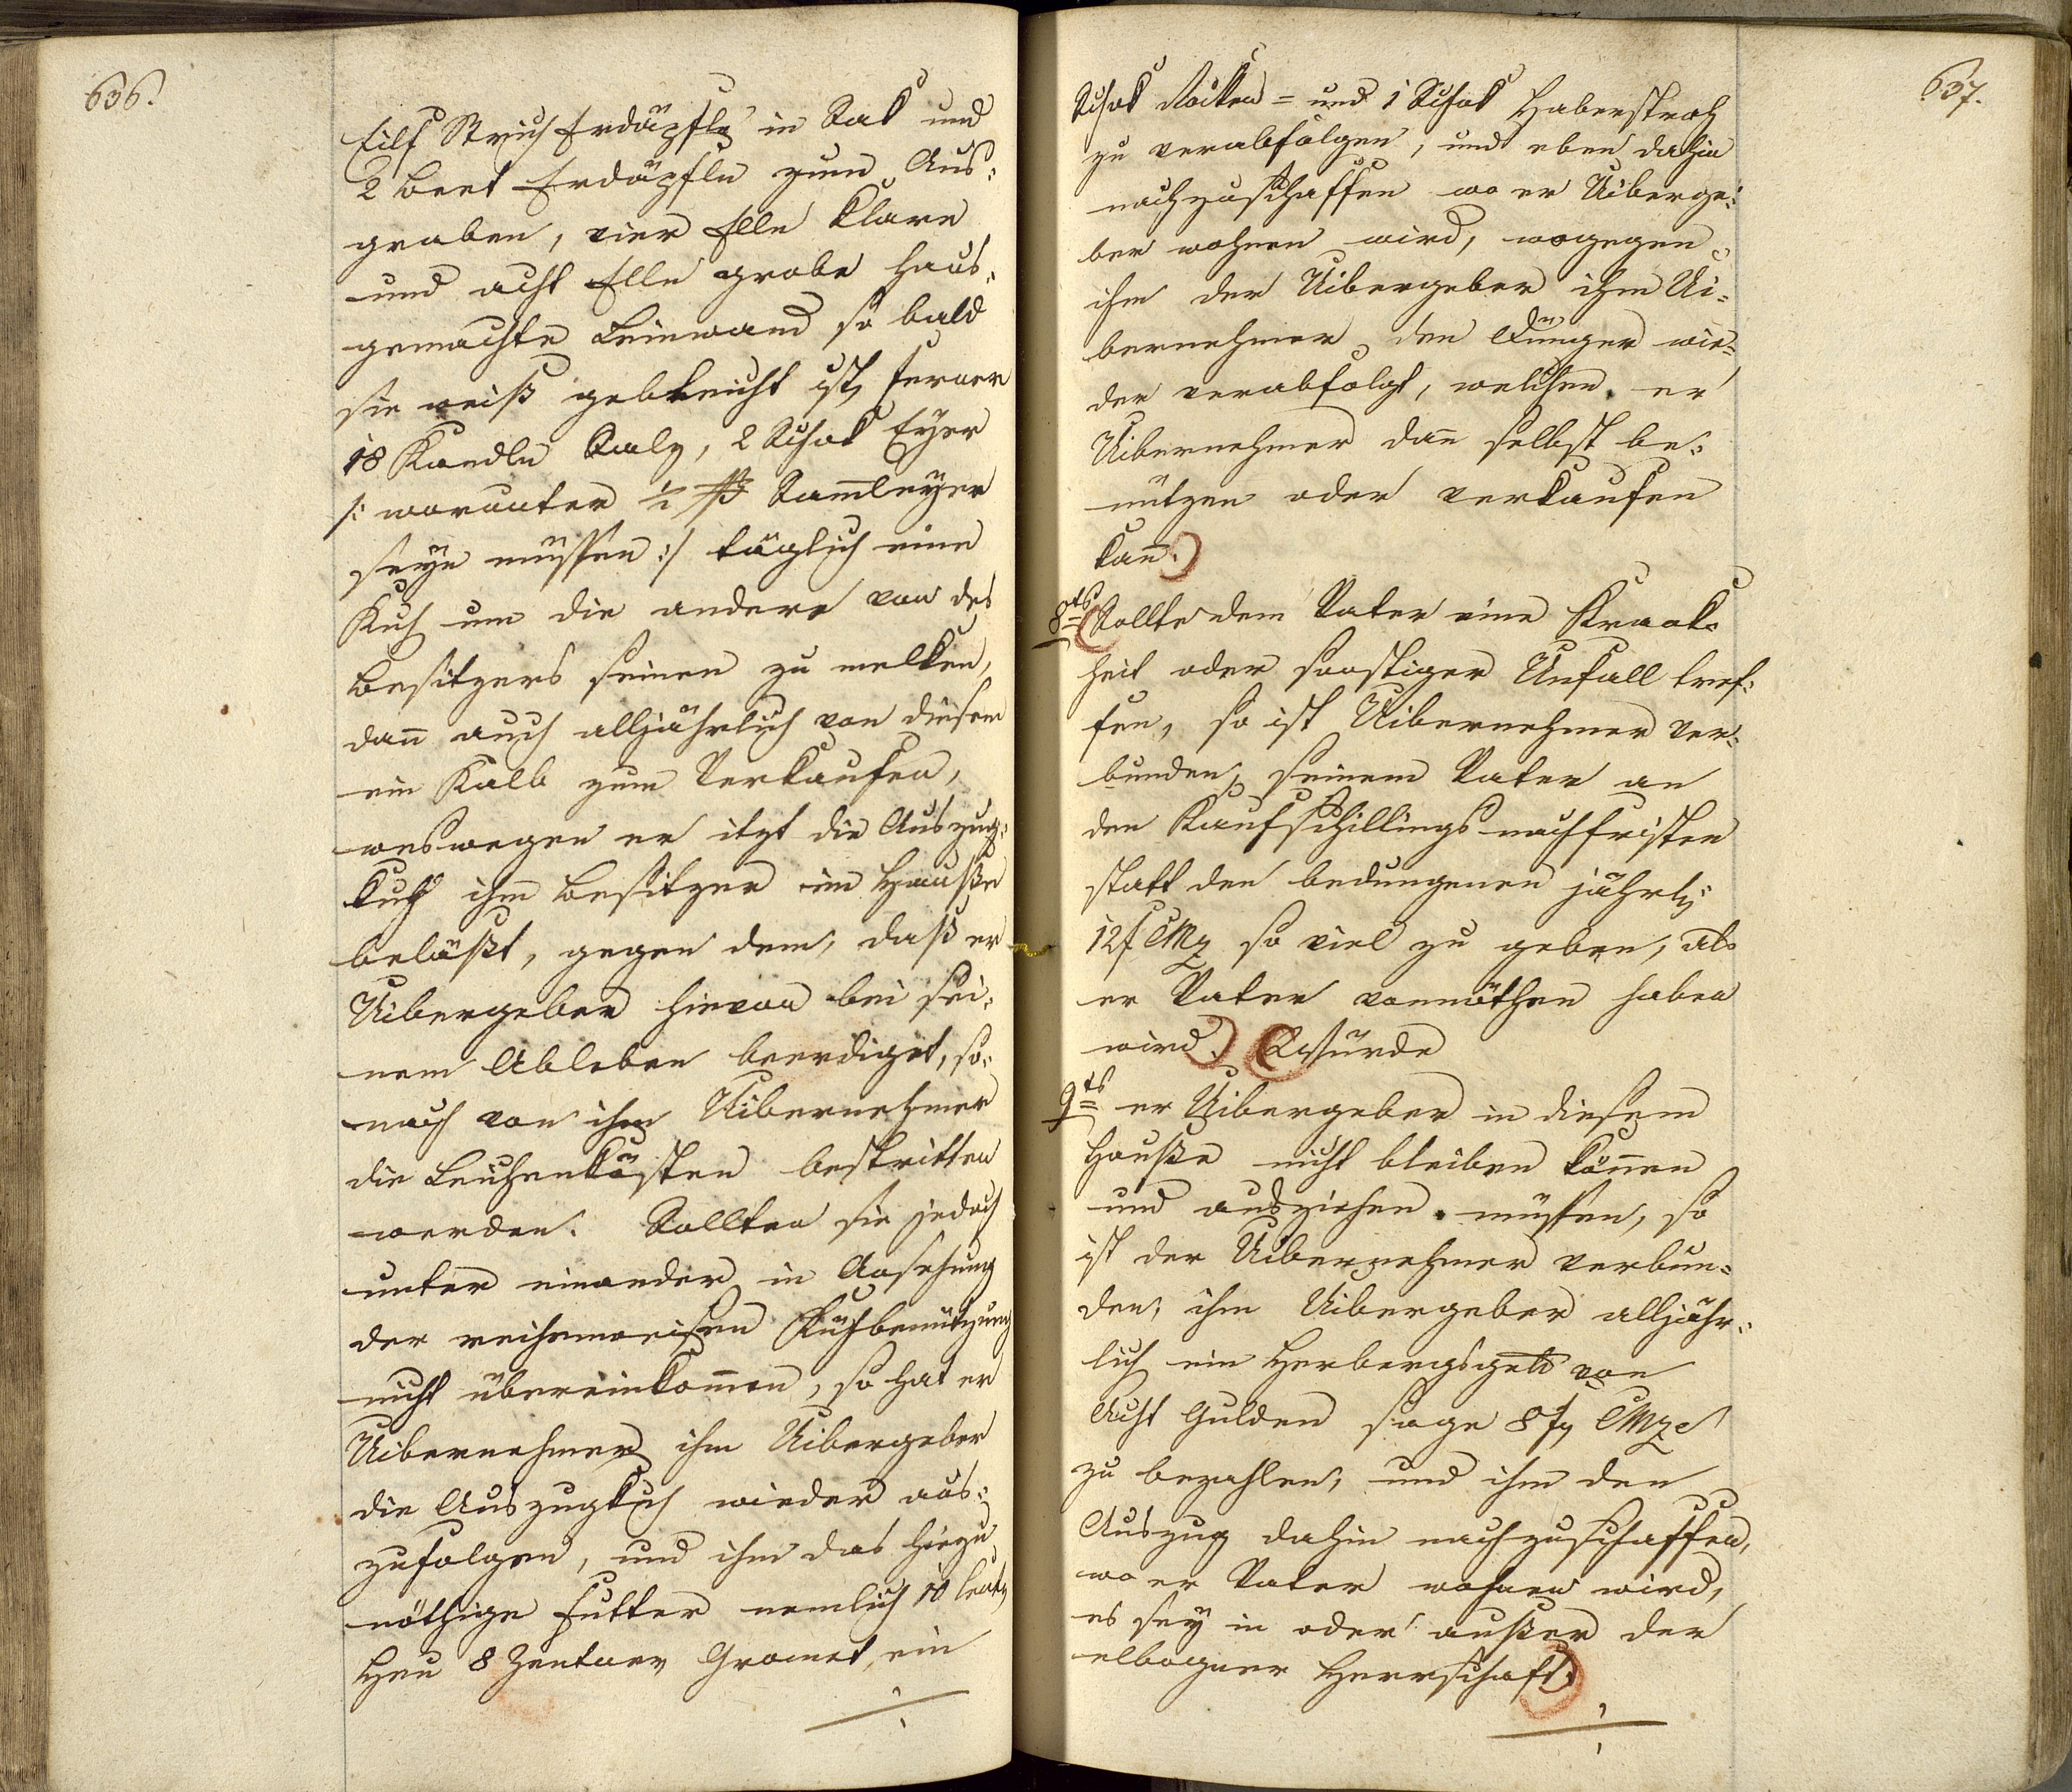 636.
Eilf Strich Erdäpfln in Sak und
2 Beet Erdäpfln zum Aus:
graben, vier Elln klare
und acht Elln grobe haus:
gemachte Leinwand so bald
sie weiß gebleicht ist, ferner
18 Kandln Salz, 2 Schok Eyer
/: worunter ½ ß Sam̄leyer
seyn müssen :/ täglich eine
Kuh um die andere von des
Besitzers seinen zu melken,
dan̄ auch alljährlich von diesem
ein Kalb zum Verkaufen,
weswegen er itzt die Auszug:
kuh ihm Besitzer im Hauße
beläßt, gegen dem, daß er
Uibergeber hievon bei sei:
nem Ableben beerdiget, so:
nach von ihm Uibernehmer
die Leichenkösten bestritten
werden. Sollten sie jedoch
unter einander in Ansehung
der reihenweisen Kühbenützung
nicht übereinkom̄en, so hat er
Uibernehmer ihm Uibergeber
die Auszugkuh wieder aus:
zufolgen, und ihm das hiezu
nöthige Futter nemlich 10 Centn
Heu 8 Zentner Gromet, ein
637.
Schok Rocken = und 1 Schok Haberstroh
zu verabfolgen, und eben dahin
nachzuschaffen wo er Uiberge:
ber wohnen wird, wogegen
ihm der Uibergeber ihm Ui:
bernehmer den Dünger wie:
der verabfolgt, welchen er
Uibernehmer dan̄ selbst be:
nützen oder verkaufen
kan̄.
8tens Sollte dem Vater eine Krank:
heit oder sonstiger Unfall tref:
fen, so ist Uibernehmer ver:
bunden, seinem Vater an
den Kaufschillingsnachfristen
statt den bedungenen jährl:
12f CMz so viel zu geben, als
er Vater vonnöthen haben
wird. Würde
9tens er Uibergeber in diesem
Hauße nicht bleiben kön̄en
und ausziehen müssen, so
ist der Uibernehmer verbun:
den, ihm Uibergeber alljähr:
lich ein Herbergsgeld von
Acht Gulden sage 8 f CMze
zu bezahlen, und ihm den
Auszug dahin nachzuschaffen,
wo er Vater wohnen wird,
es sey in oder außer der
elbogner Herrschaft.